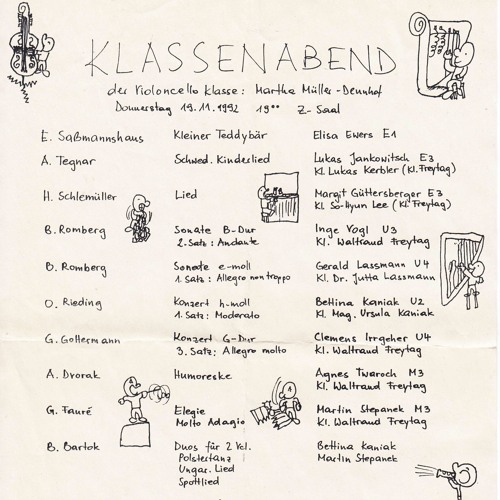 KLASSENABEND
der Violoncello Klasse: Martha Müller-Dennhof
Donnerstag 19.11.1992 19°° Z-Saal
E. Saßmannshaus Kleiner Teddybär Elisa Ewers E1
A. Tegnar Schwed. Kinderlied Lukas Jankowitsch E3
Kl. Lukas Kerbler (Kl. Freytag)
H. Schlemüller Lied Margit Güttersberger E3
Kl. So-Hyun Lee (Kl. Freytag)
B. Romberg Sonate B-Dur Inge Vogl U3
2. Satz: Andante Kl. Waltraud Freytag
B. Romberg Sonate e-moll Gerald Lassmann U4
1. Satz: Allegro non troppo Kl. Dr. Jutta Lassmann
O. Rieding Konzert h-moll Bettina Kaniak U2
1. Satz: Moderato Kl. Mag. Ursula Kaniak
G. Goltermann Konzert G-Dur Clemens Irrgeher U4
3. Satz: Allegro molto Kl. Waltraud Freytag
A. Dvorak Humoreske Agnes Twaroch M3
Kl. Waltraud Freytag
G. Fauré Elegie Martin Stepanek M3
Molto Adagio Kl. Waltraud Freytag
B. Bartok Duos für 2 Vcl. Bettina Kaniak
Polstertanz Martin Stepanek
Ungar. Lied
Spottlied